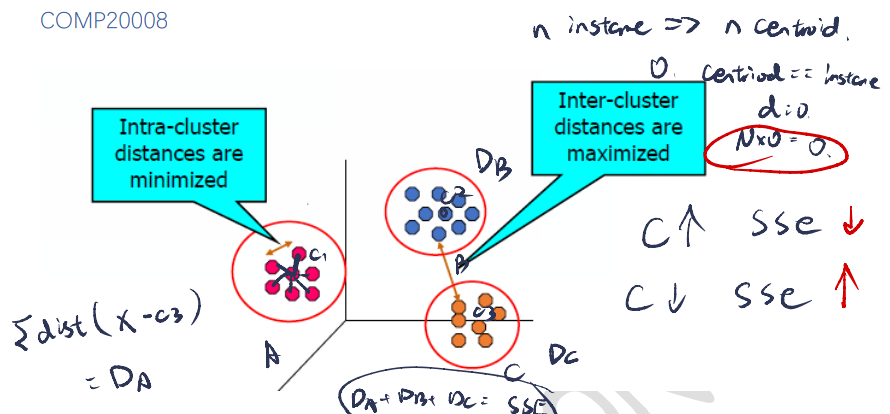 COMP20008
n instane => n centroid.
0. centriod == instane
d=0.
N×0 = 0.
Intra-cluster
distances are
minimized
Inter-cluster
distances are
maximized
DB
C2
C1
B
C3
C ↑ SSe ↓
C ↓ SSe ↑
Σdist(x-c3)
= DA
A
DC
C
DA + DB + DC = SSE